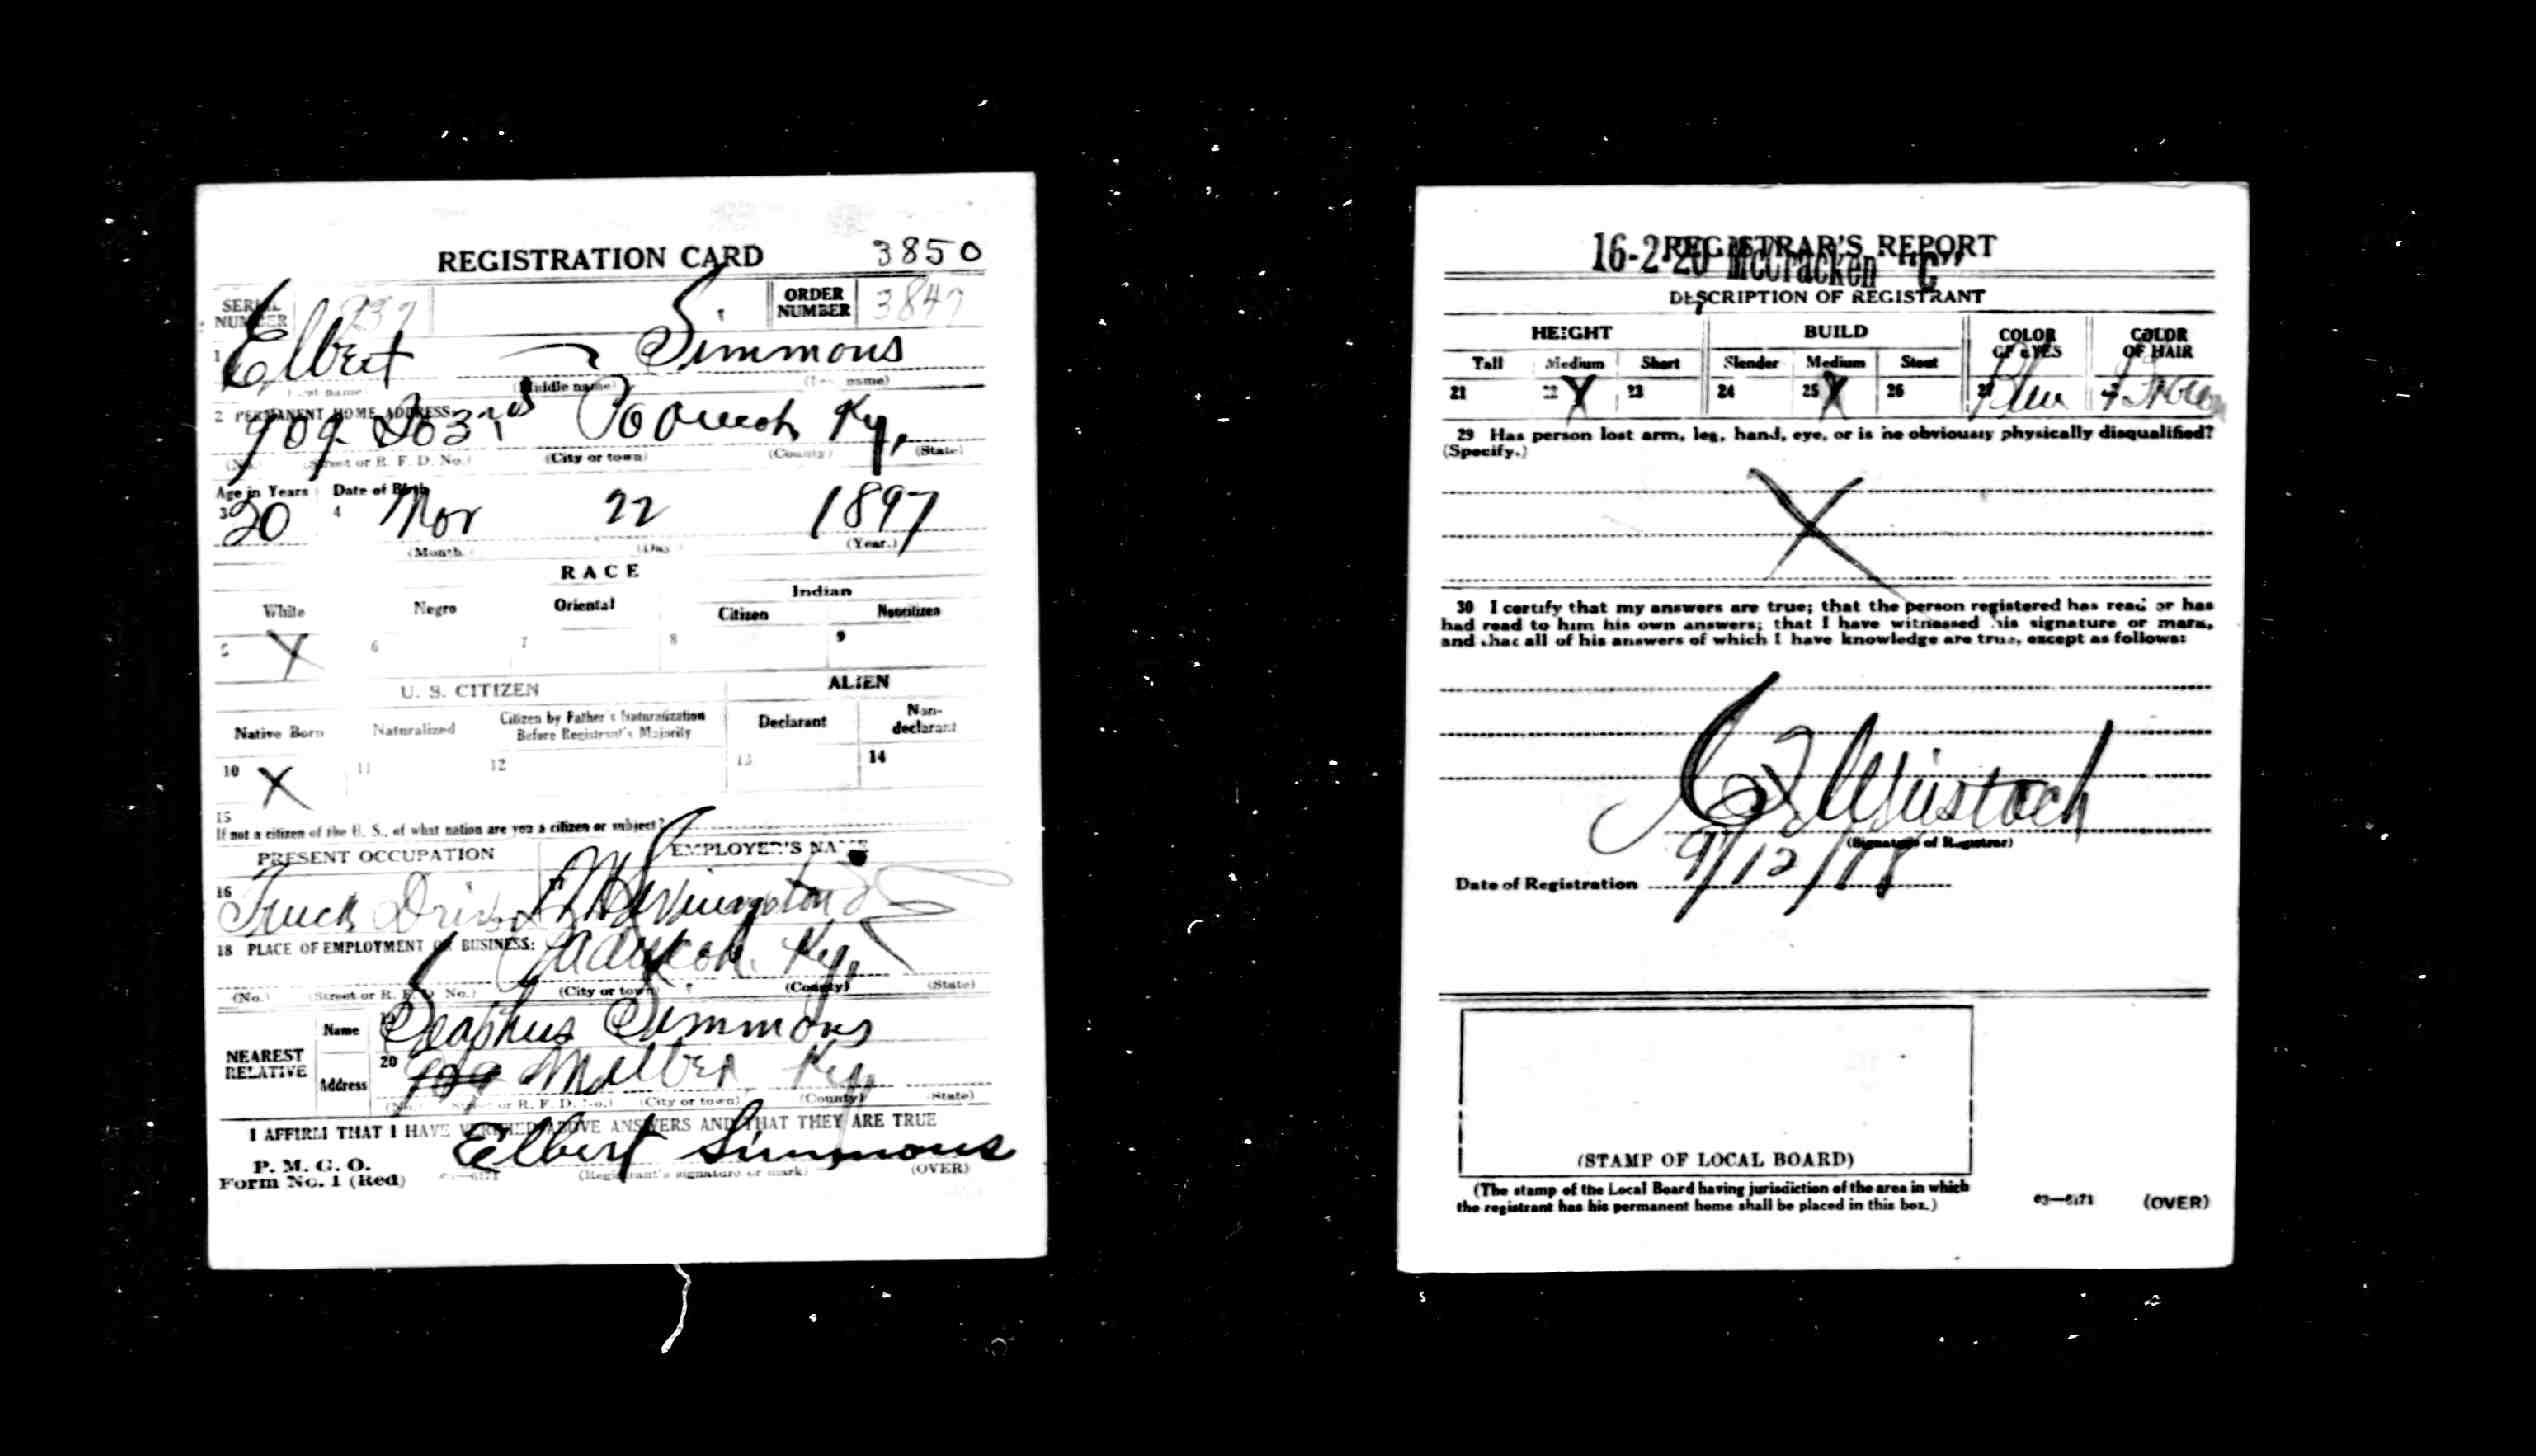 REGISTRATION CARD 3850
SERIAL NUMBER 237 ORDER NUMBER 3847
1 Elbert — Simmons
(First name) (Middle name) (Last name)
2 PERMANENT HOME ADDRESS:
909 So 3rd Paducah Ky.
(No.) (Street or R. F. D. No.) (City or town) (County) (State)
Age in Years Date of Birth
3 20 4 Nov 22 1897
(Month.) (Day.) (Year.)
RACE
White Negro Oriental Indian
Citizen Noncitizen
5 X 6 7 8 9
U. S. CITIZEN ALIEN
Native Born Naturalized Citizen by Father's Naturalization Before Registrant's Majority Declarant Non-declarant
10 X 11 12 13 14
15
If not a citizen of the U. S., of what nation are you a citizen or subject?
PRESENT OCCUPATION EMPLOYER'S NAME
16 Truck Driver Livingston
18 PLACE OF EMPLOYMENT OR BUSINESS:
Paducah Ky.
(No.) (Street or R. F. D. No.) (City or town) (County) (State)
NEAREST RELATIVE
Name 19 Simmons
Address 20 909 Melber Ky.
(No.) (Street or R. F. D. No.) (City or town) (County) (State)
I AFFIRM THAT I HAVE VERIFIED ABOVE ANSWERS AND THAT THEY ARE TRUE
P. M. G. O.
Form No. 1 (Red) 03—6171 Elbert Simmons
(Registrant's signature or mark) (OVER)
REGISTRAR'S REPORT
16-2-20 McCracken "C"
DESCRIPTION OF REGISTRANT
HEIGHT BUILD COLOR OF EYES COLOR OF HAIR
Tall Medium Short Slender Medium Stout
21 22 X 23 24 25 X 26 27 Blue 28 Brown
29 Has person lost arm, leg, hand, eye, or is he obviously physically disqualified?
(Specify.)
X
30 I certify that my answers are true; that the person registered has read or has
had read to him his own answers; that I have witnessed his signature or mark,
and that all of his answers of which I have knowledge are true, except as follows:
(Signature of Registrar)
Date of Registration 9/12/18
(STAMP OF LOCAL BOARD)
(The stamp of the Local Board having jurisdiction of the area in which
the registrant has his permanent home shall be placed in this box.)
03—6171 (OVER)